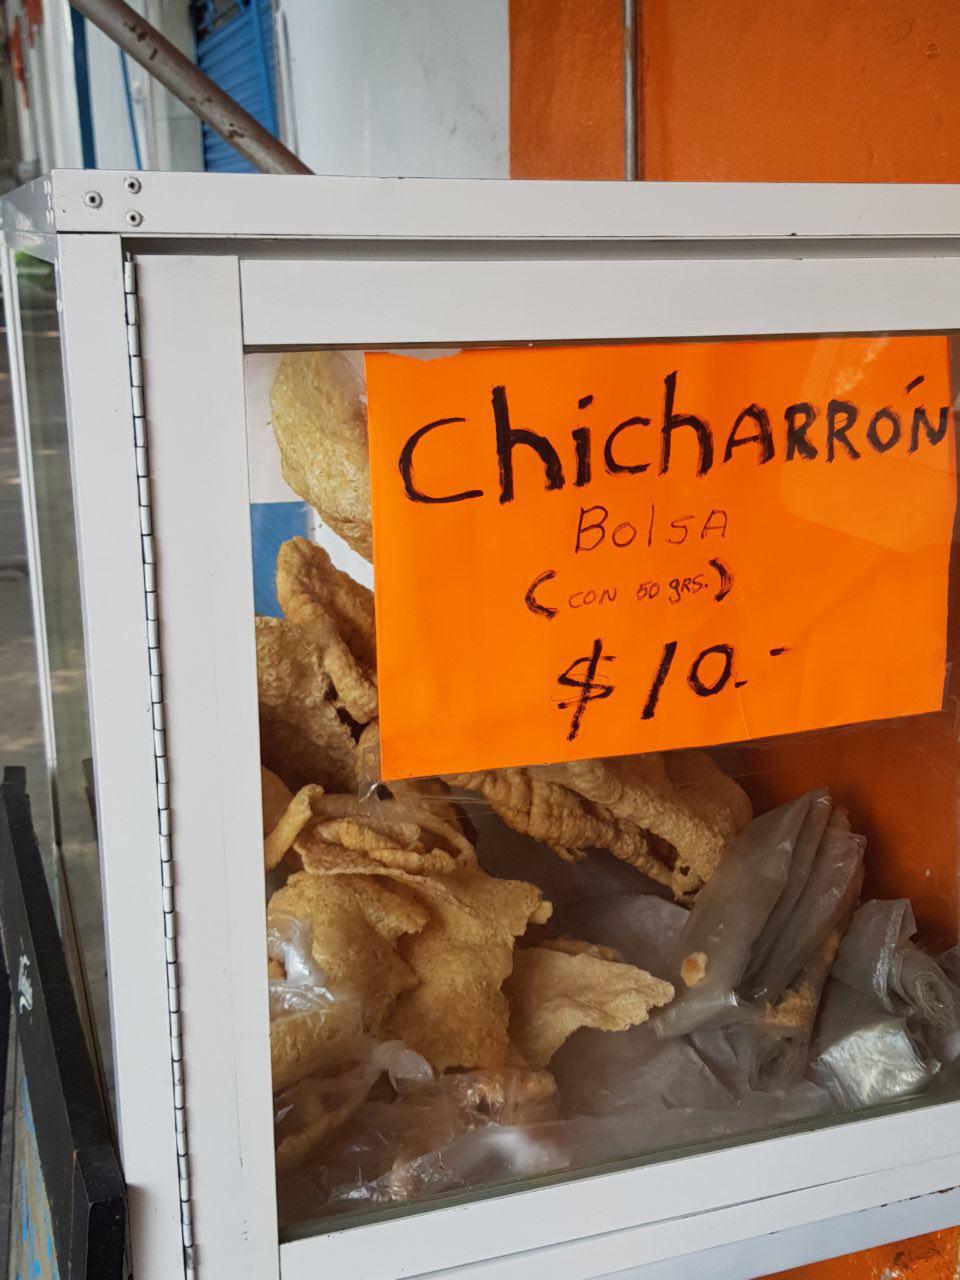 ChichARRÓN
BolSA
(CON 50 gRS.)
$10.-